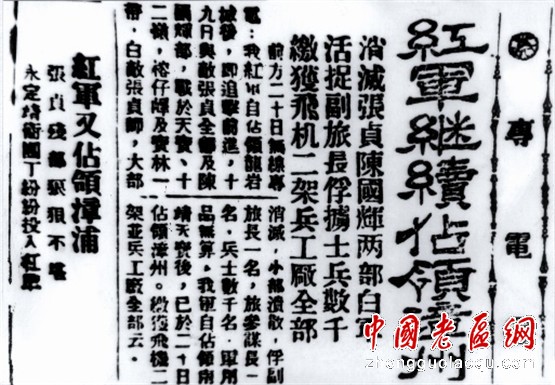 專電
紅軍继續佔領漳州
消滅張貞陳國輝两部白軍
活捉副旅長俘擄士兵數千
繳獲飛机二架兵工厰全部
前方二十日無線專
電:我紅軍自佔領龍岩
城後,即追擊前進,十
九日與敵張貞全部及陳
國輝部,戰於天寶、十
二嶺,榕仔嶺及寶林一
帶,白敵張貞師,大部
消滅,小部潰散,俘副
旅長一名,旅參謀長一
名,兵士數千名,軍用
品無算。我軍自佔領南
靖天寶後,已於二十日
佔領漳州。繳獲飛機二
架並兵工厰全部云。
紅軍又佔領漳浦
張貞殘部狼狽不堪
永定靖衛團丁紛紛投入紅軍
中國老區網